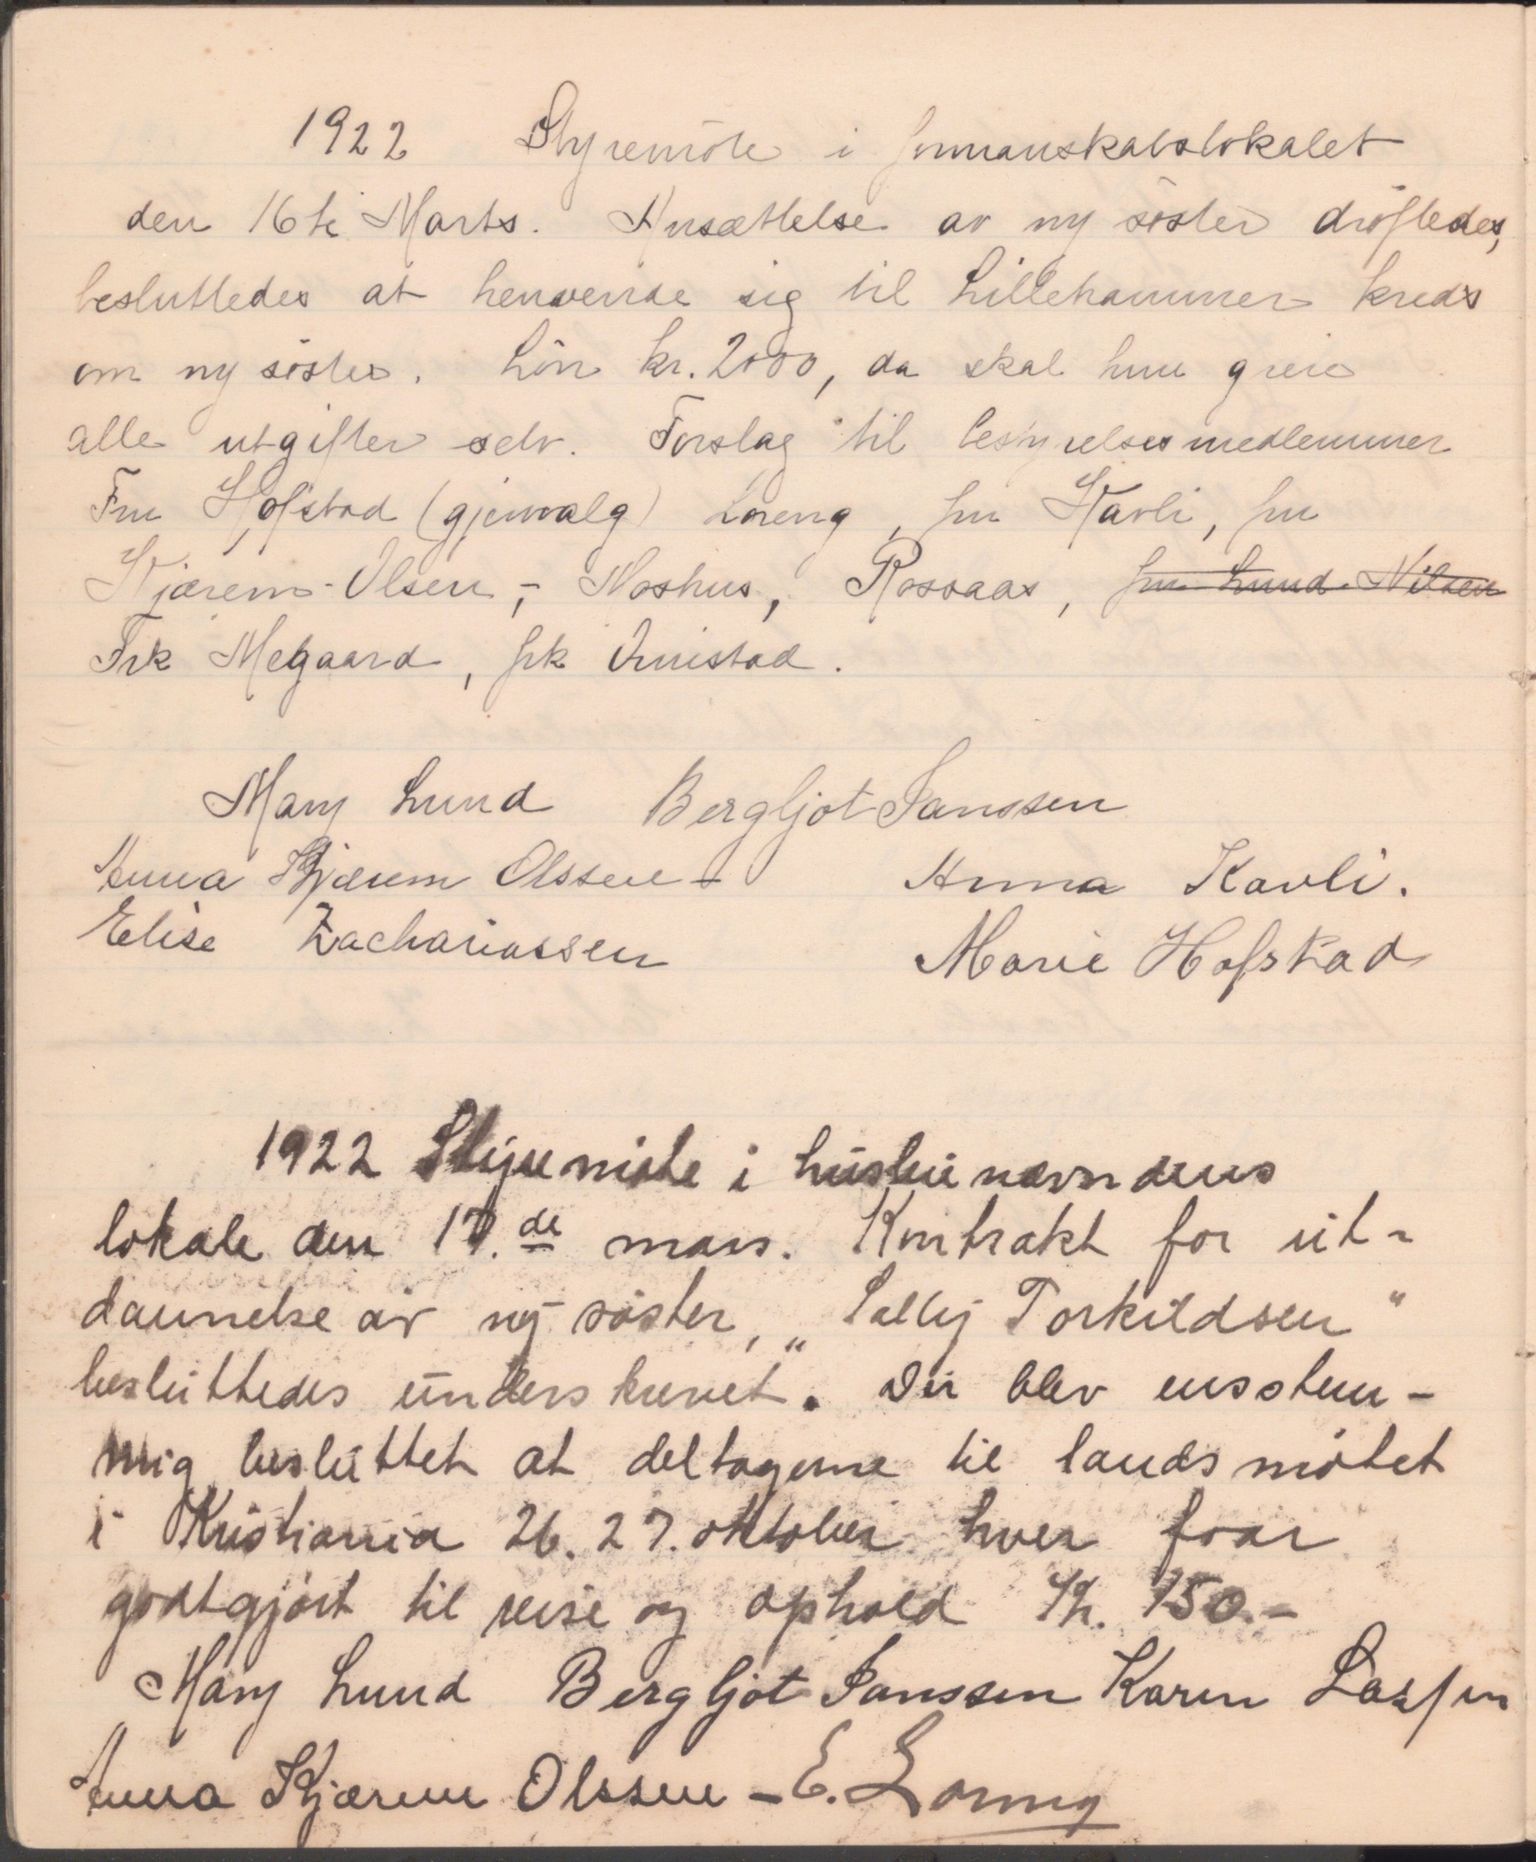 1922 Styremöte i formanskabslokalet
den 16te Marts. Ansættelse av ny söster dröftedes,
besluttedes at henvende sig til Lillehammer kreds
om ny söster. Lön kr. 2000, da skal hun greie
alle utgifter selv. Forslag til bestyrelsesmedlemmer
Fru Hofstad (gjenvalg) Loreng, fru Kavli, fru
Kjærem-Olsen, - Moshus, Rosvaas, fru Lund-Nilsen
Frk Melgaard, frk Onnistad.
Mary Lund Bergljot Janssen
Anna Kjærem Olssen - Anna Kavli.
Elise Zachariassen
Marie Hofstad
1922 Styremöte i husleienævndens
lokale den 17.de mars. Kontrakt for ut-
dannelse av ny söster, „Sally Torkildsen“
besluttedes underskrevet. Der blev enstem-
mig besluttet at deltagerne til landsmötet
i Kristiania 26. 27. oktober hver faar
godtgjört til reise og ophold Kr. 150.-
Mary Lund Bergljot Janssen Karen Lassen
Anna Kjærem Olssen - E. Loreng